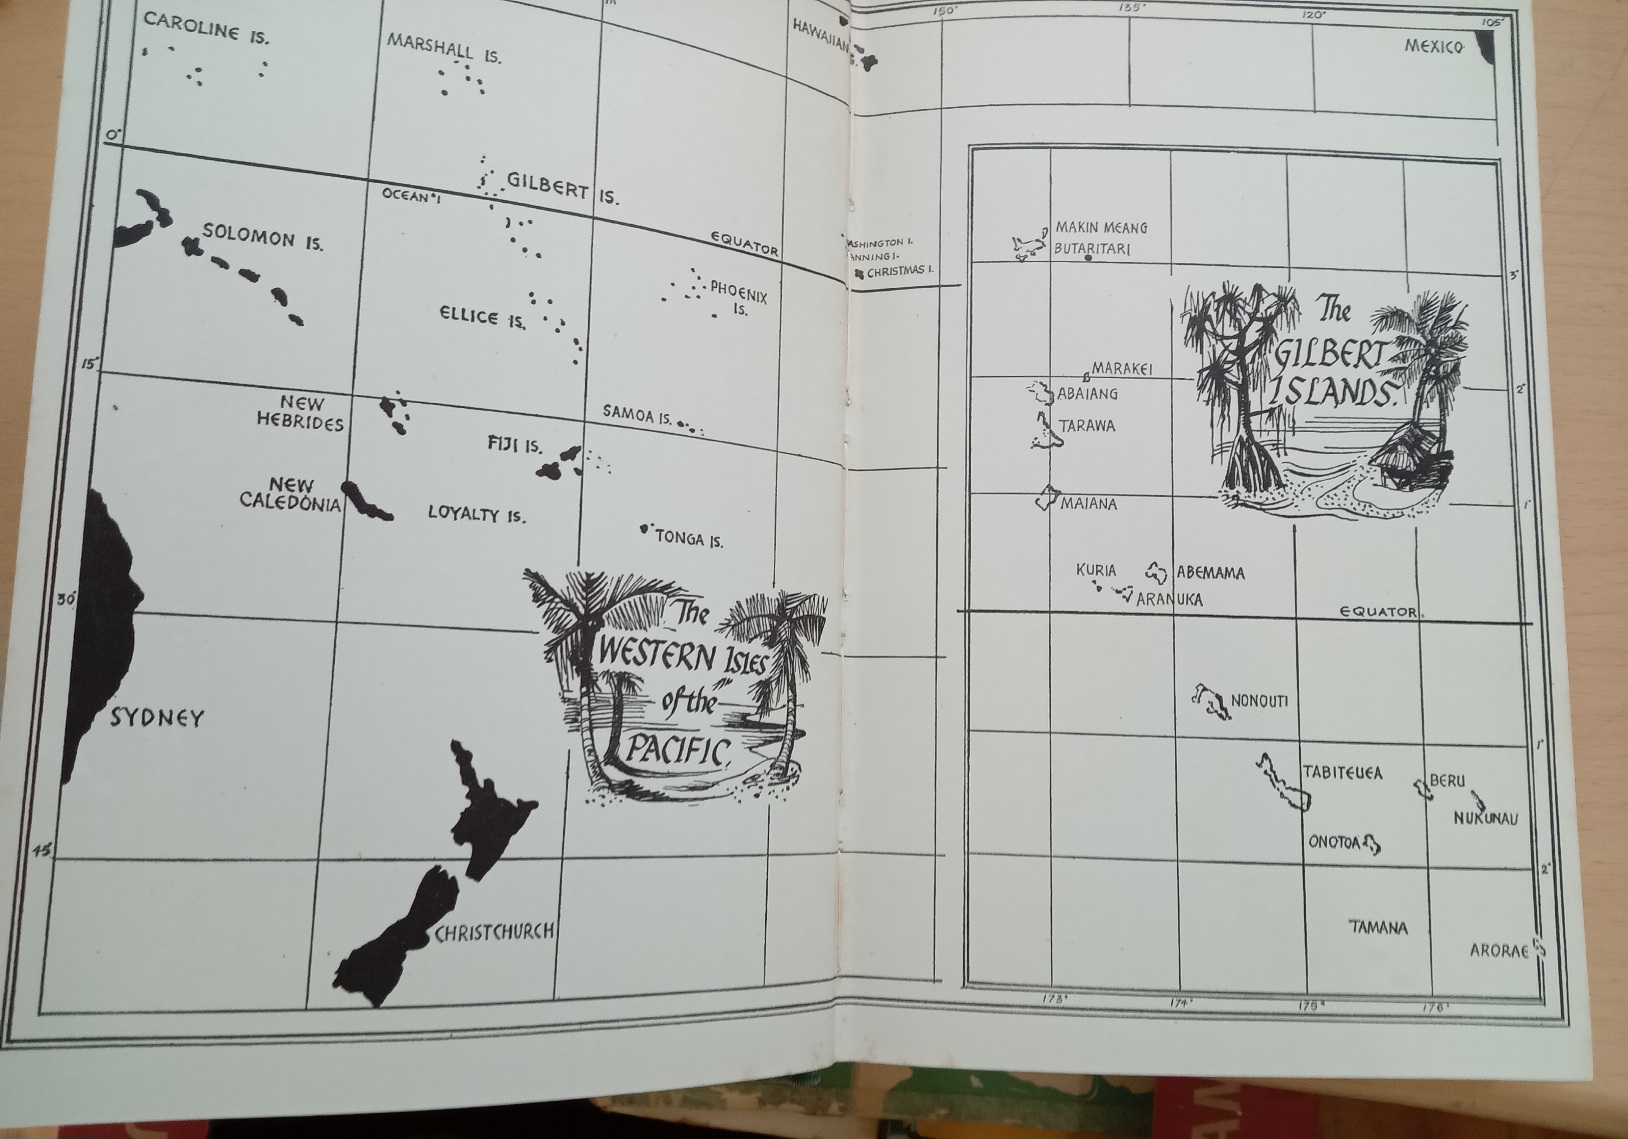 CAROLINE IS.
MARSHALL IS.
HAWAIIAN
0°
GILBERT IS.
OCEAN I
SOLOMON IS.
EQUATOR
PHOENIX
IS.
ELLICE IS.
15°
NEW
HEBRIDES
SAMOA IS.
FIJI IS.
NEW
CALEDONIA
LOYALTY IS.
TONGA IS.
30°
The
WESTERN ISLES
of the
PACIFIC.
SYDNEY
45°
CHRISTCHURCH
150°
135°
120°
105°
MEXICO
CHRISTMAS I.
MAKIN MEANG
BUTARITARI
3°
The
GILBERT
ISLANDS.
MARAKEI
2°
ABAIANG
TARAWA
MAIANA
1°
KURIA
ABEMAMA
ARANUKA
EQUATOR.
NONOUTI
1°
TABITEUEA
BERU
NUKUNAU
ONOTOA
2°
TAMANA
ARORAE
173°
174°
175°
176°